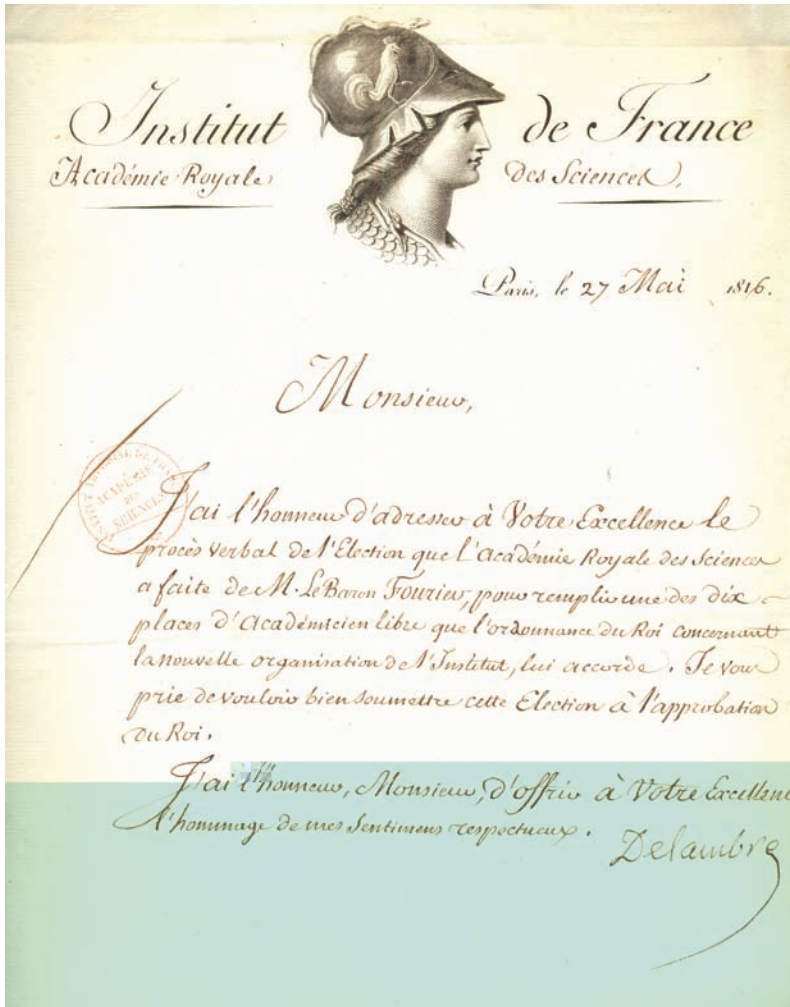 Institut de France
Académie Royale des Sciences.
Paris, le 27 Mai 1816.
Monsieur,
ACADÉMIE
DES
SCIENCES
J'ai l'honneur d'adresser à Votre Excellence le
procès verbal de l'Election que l'Académie Royale des Sciences
a faite de M. Le Baron Fourier, pour remplir une des dix
places d'Académicien libre que l'ordonnance du Roi concernant
la nouvelle organisation de l'Institut, lui accorde. Je vous
prie de vouloir bien soumettre cette Election à l'approbation
du Roi.
J'ai l'honneur, Monsieur, d'offrir à Votre Excellenc
l'hommage de mes Sentimens respectueux.
Delambre